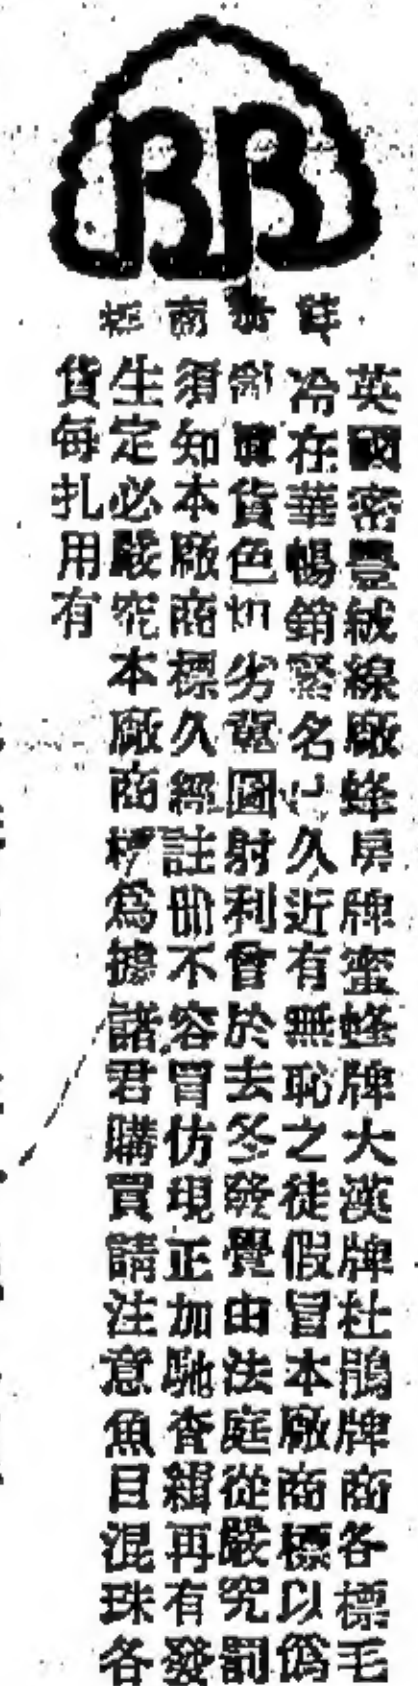 BB
商標
英國密豐絨線廠蜂房牌蜜蜂牌大漢牌杜鵑牌商各標毛
冷在華暢銷名已久近有無恥之徒假冒本廠商標以僞
貨色劣圖射利曾於去冬發覺由法庭從嚴究罰
須知本廠商標久經註冊不容冒仿現正加馳查緝再有發
生定必嚴究本廠商標爲據諸君購買請注意魚目混珠各
貨每扎用有